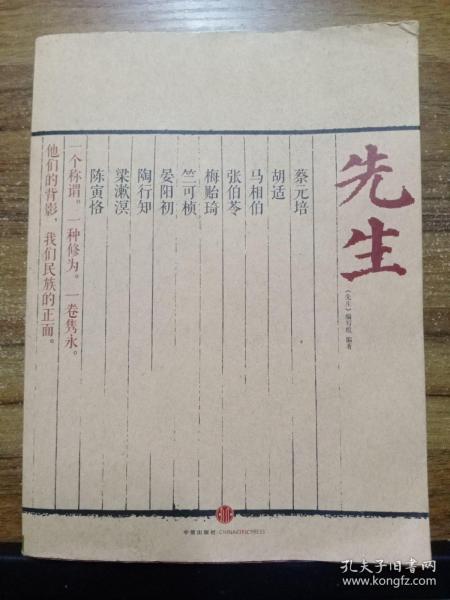 先生
《先生》编写组 编著
蔡元培
胡适
马相伯
张伯苓
梅贻琦
竺可桢
晏阳初
陶行知
梁漱溟
陈寅恪
一个称谓。一种修为。一卷隽永。
他们的背影，我们民族的正面。
中信出版社·CHINACITICPRESS
孔夫子旧书网
www.kongfz.com